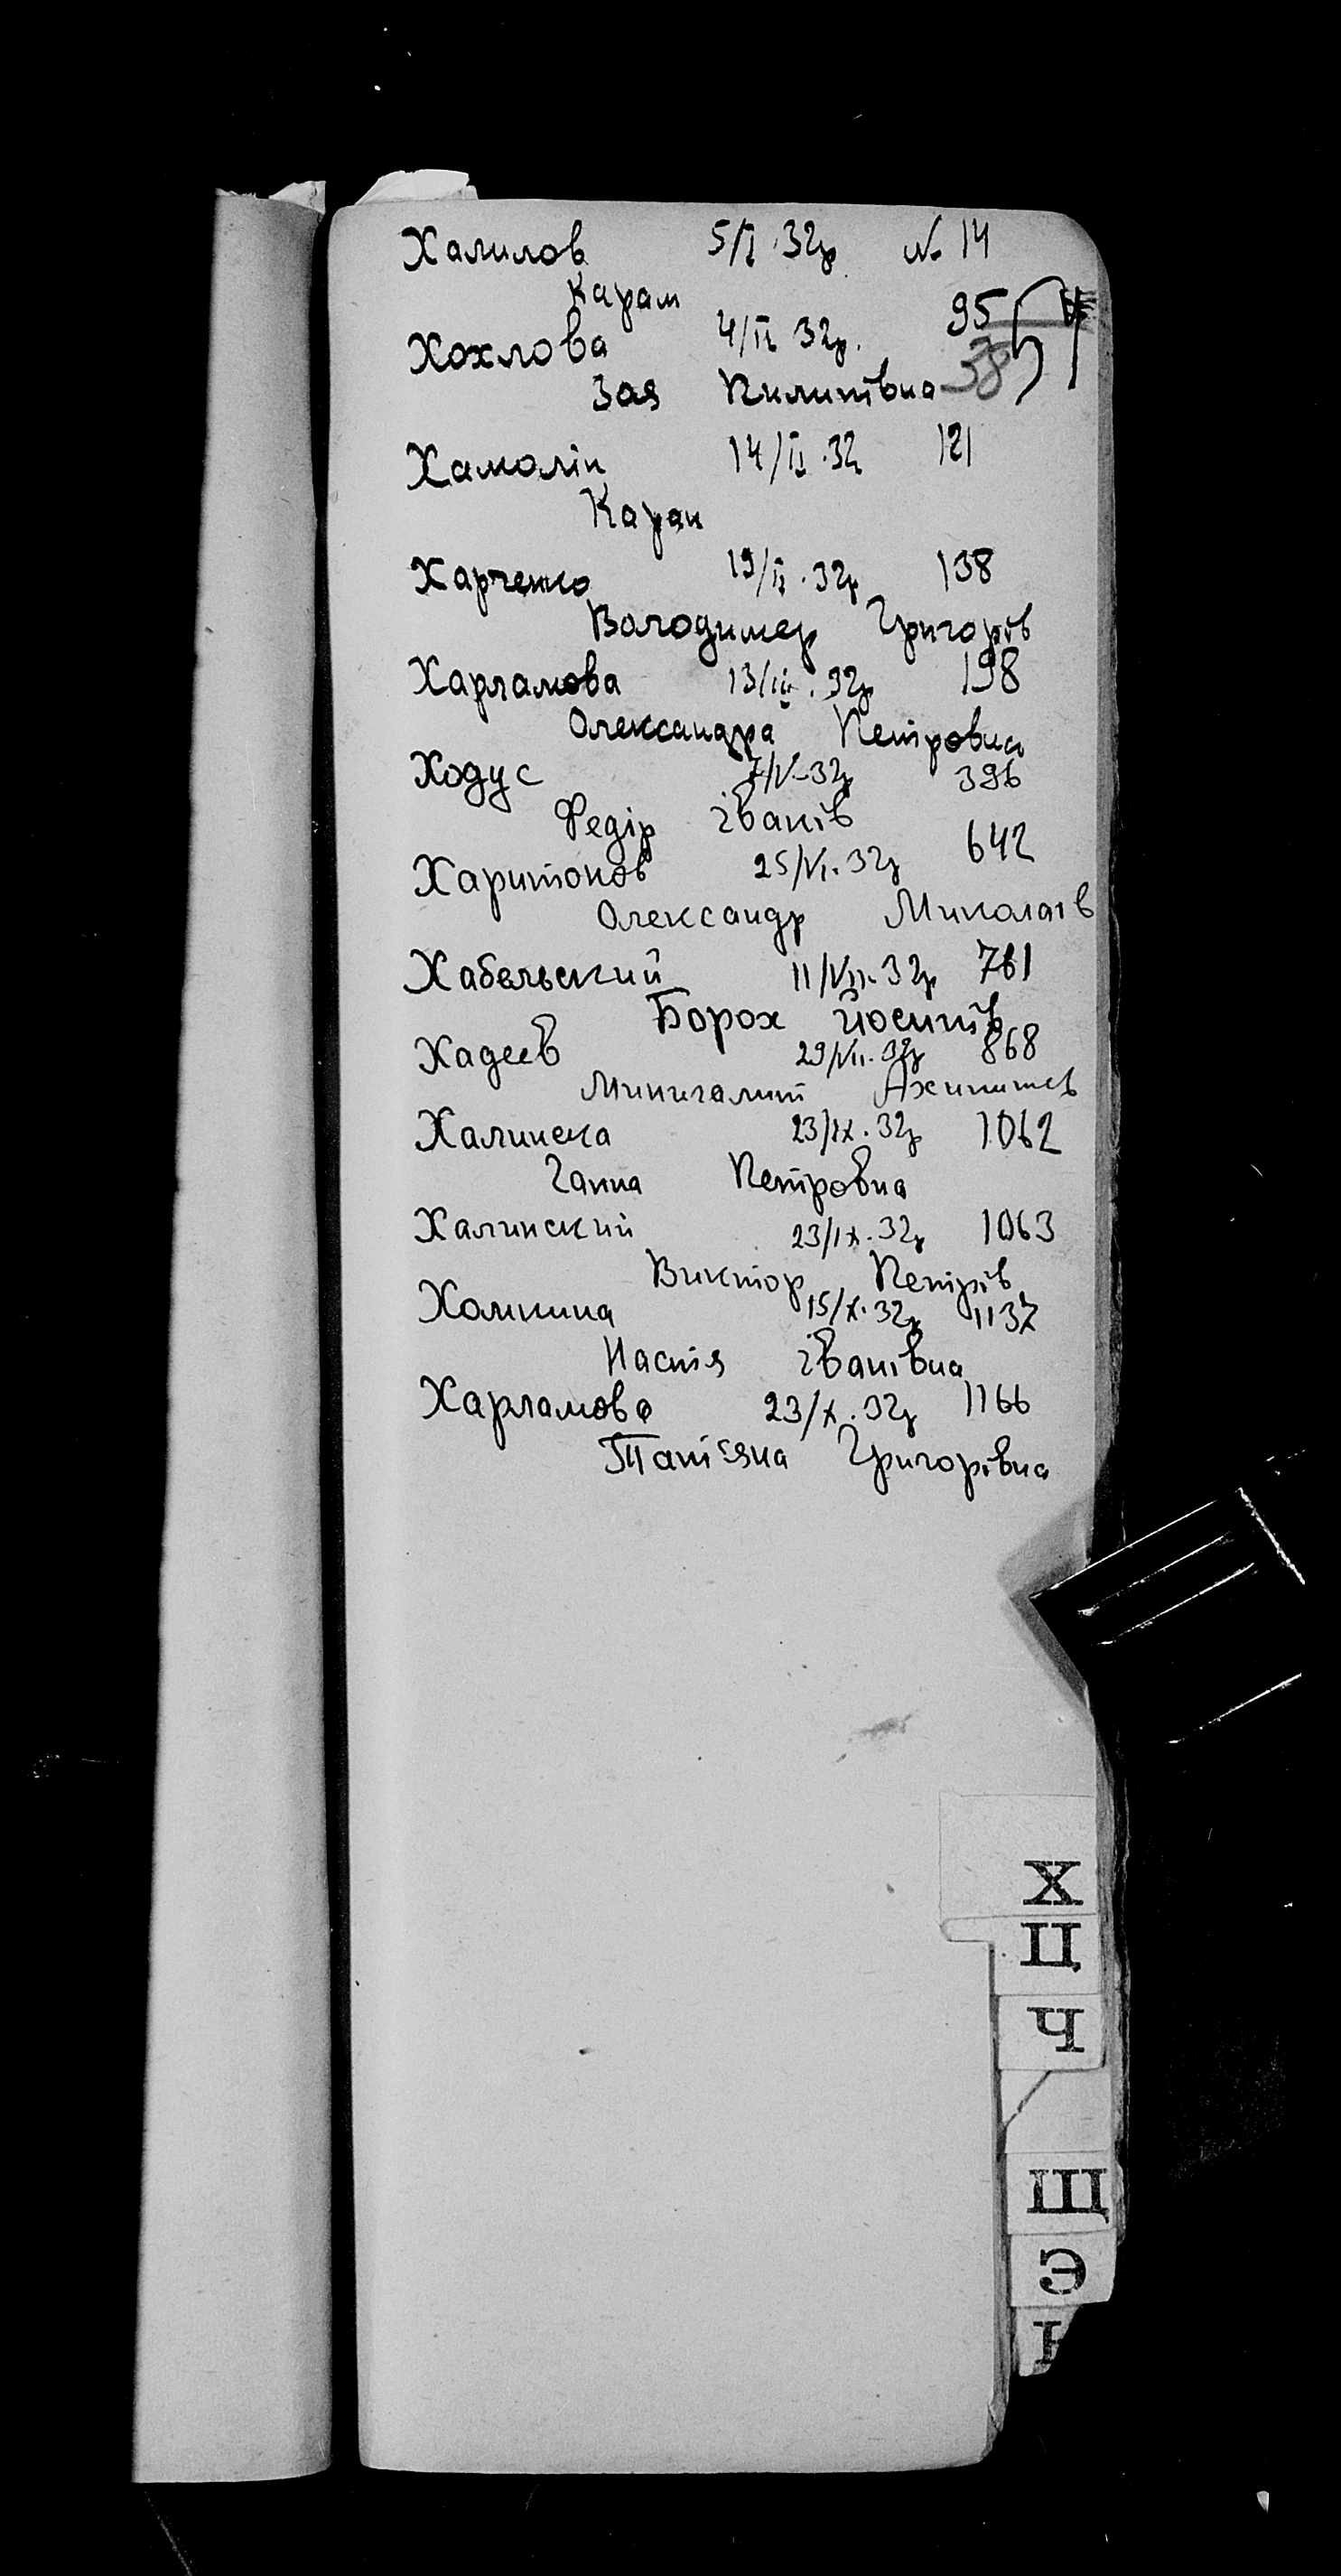 Халилов 5/I.32р № 14
Карам
Хохлова 4/II 32р. 95
Зая Пилипівна 38
Хамолін 14/II.32 121
Каран
Харченко 19/II.32р 138
Володимер Григорів
Харламова 13/III.32р 198
Олександра Петровна
Ходус 7/V-32р 396
Федір іванів
Харитонов 25/VI.32р 642
Олександр Миколаів
Хабельский 11/VII.32р 761
Борох Йосипів
Хадеев 29/VII.32р 868
Халинска 23/IX.32р 1062
Ганна Петровна
Халинский 23/IX.32р 1063
Виктор Петрів
Хомкина 15/X.32р 1137
Настя іванівна
Харламова 23/X.32р 1166
Тать'яна Григорівна
Х
Ц
Ч
Щ
Э